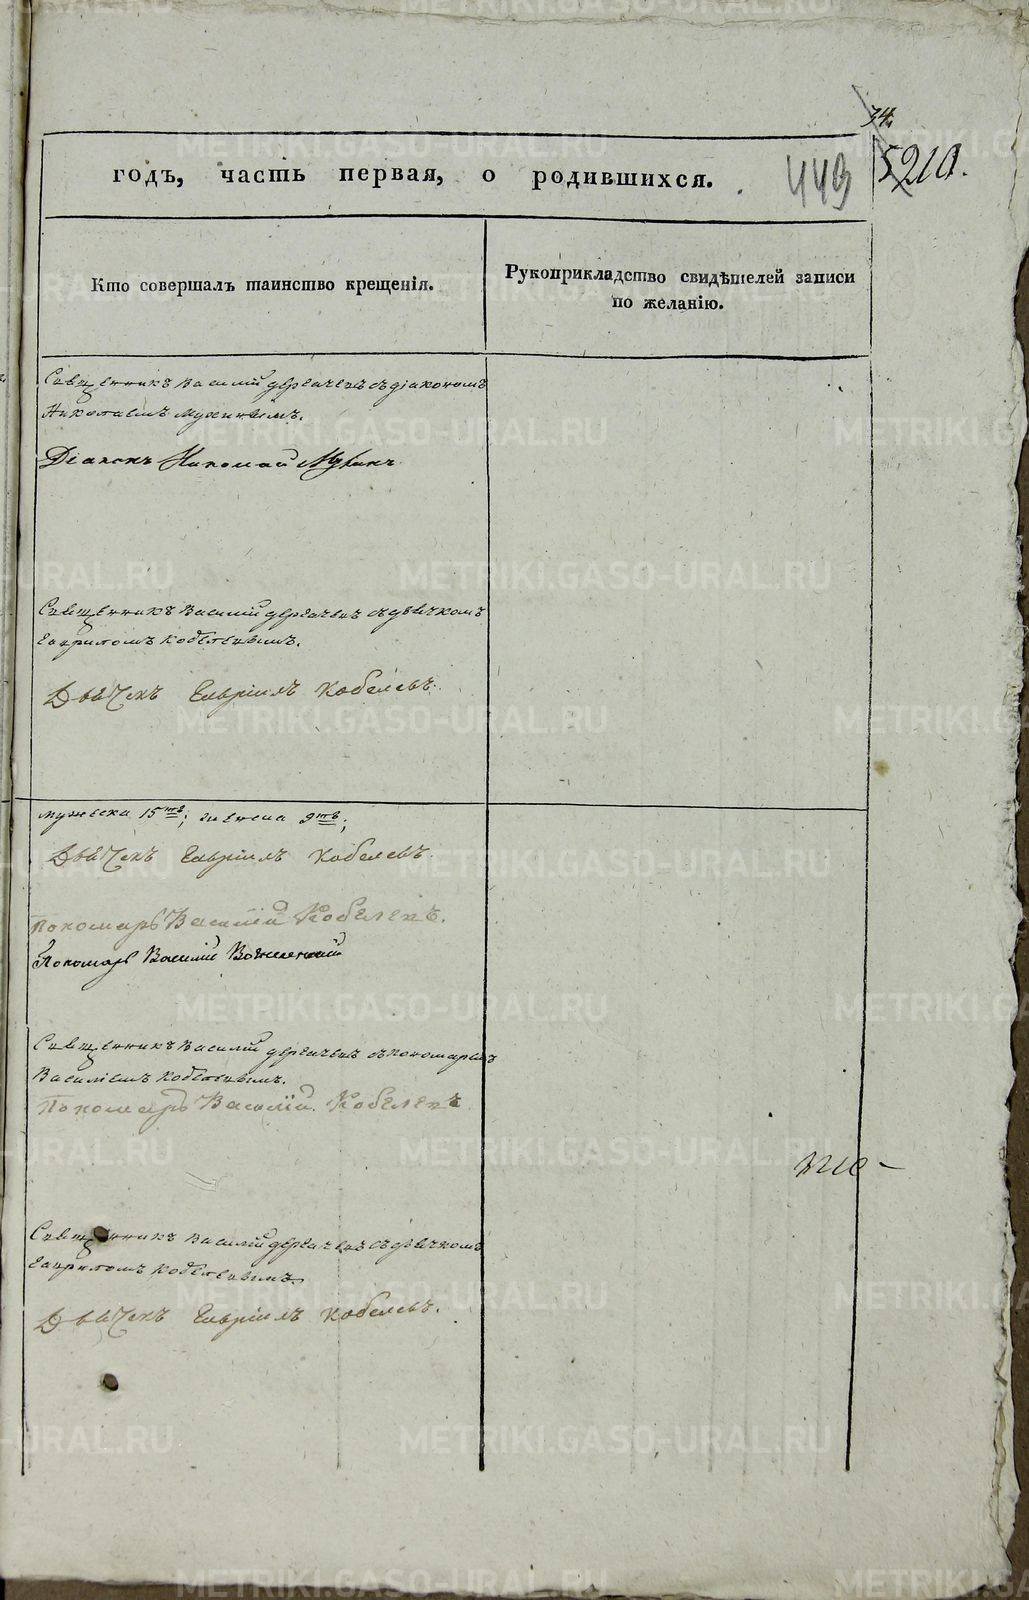 34.
годъ, часть первая, о родившихся.
449
5210.
Кто совершалъ таинство крещенія.
Рукоприкладство свидѣтелей записи
по желанію.
Священникъ Василій Дергачевъ съ діакономъ
Николаемъ Мухинымъ.
Діаконъ Николай Мухинъ
Священникъ Василій Дергачевъ съ дьячкомъ
Гавриломъ Кобелевымъ.
Дьячекъ Гавріилъ Кобелевъ.
мужеска 15ть; женска 9ть;
Дьячекъ Гавріилъ Кобелевъ.
Пономарь Василій Кобелевъ.
Пономарь Василій
Священникъ Василій Дергачевъ съ пономаремъ
Василіемъ Кобелевымъ.
Пономарь Василій Кобелевъ
Священникъ Василій Дергачевъ съ дьячкомъ
Гавриломъ Кобелевымъ.
Дьячекъ Гавріилъ Кобелевъ.
METRIKI.GASO-URAL.RU